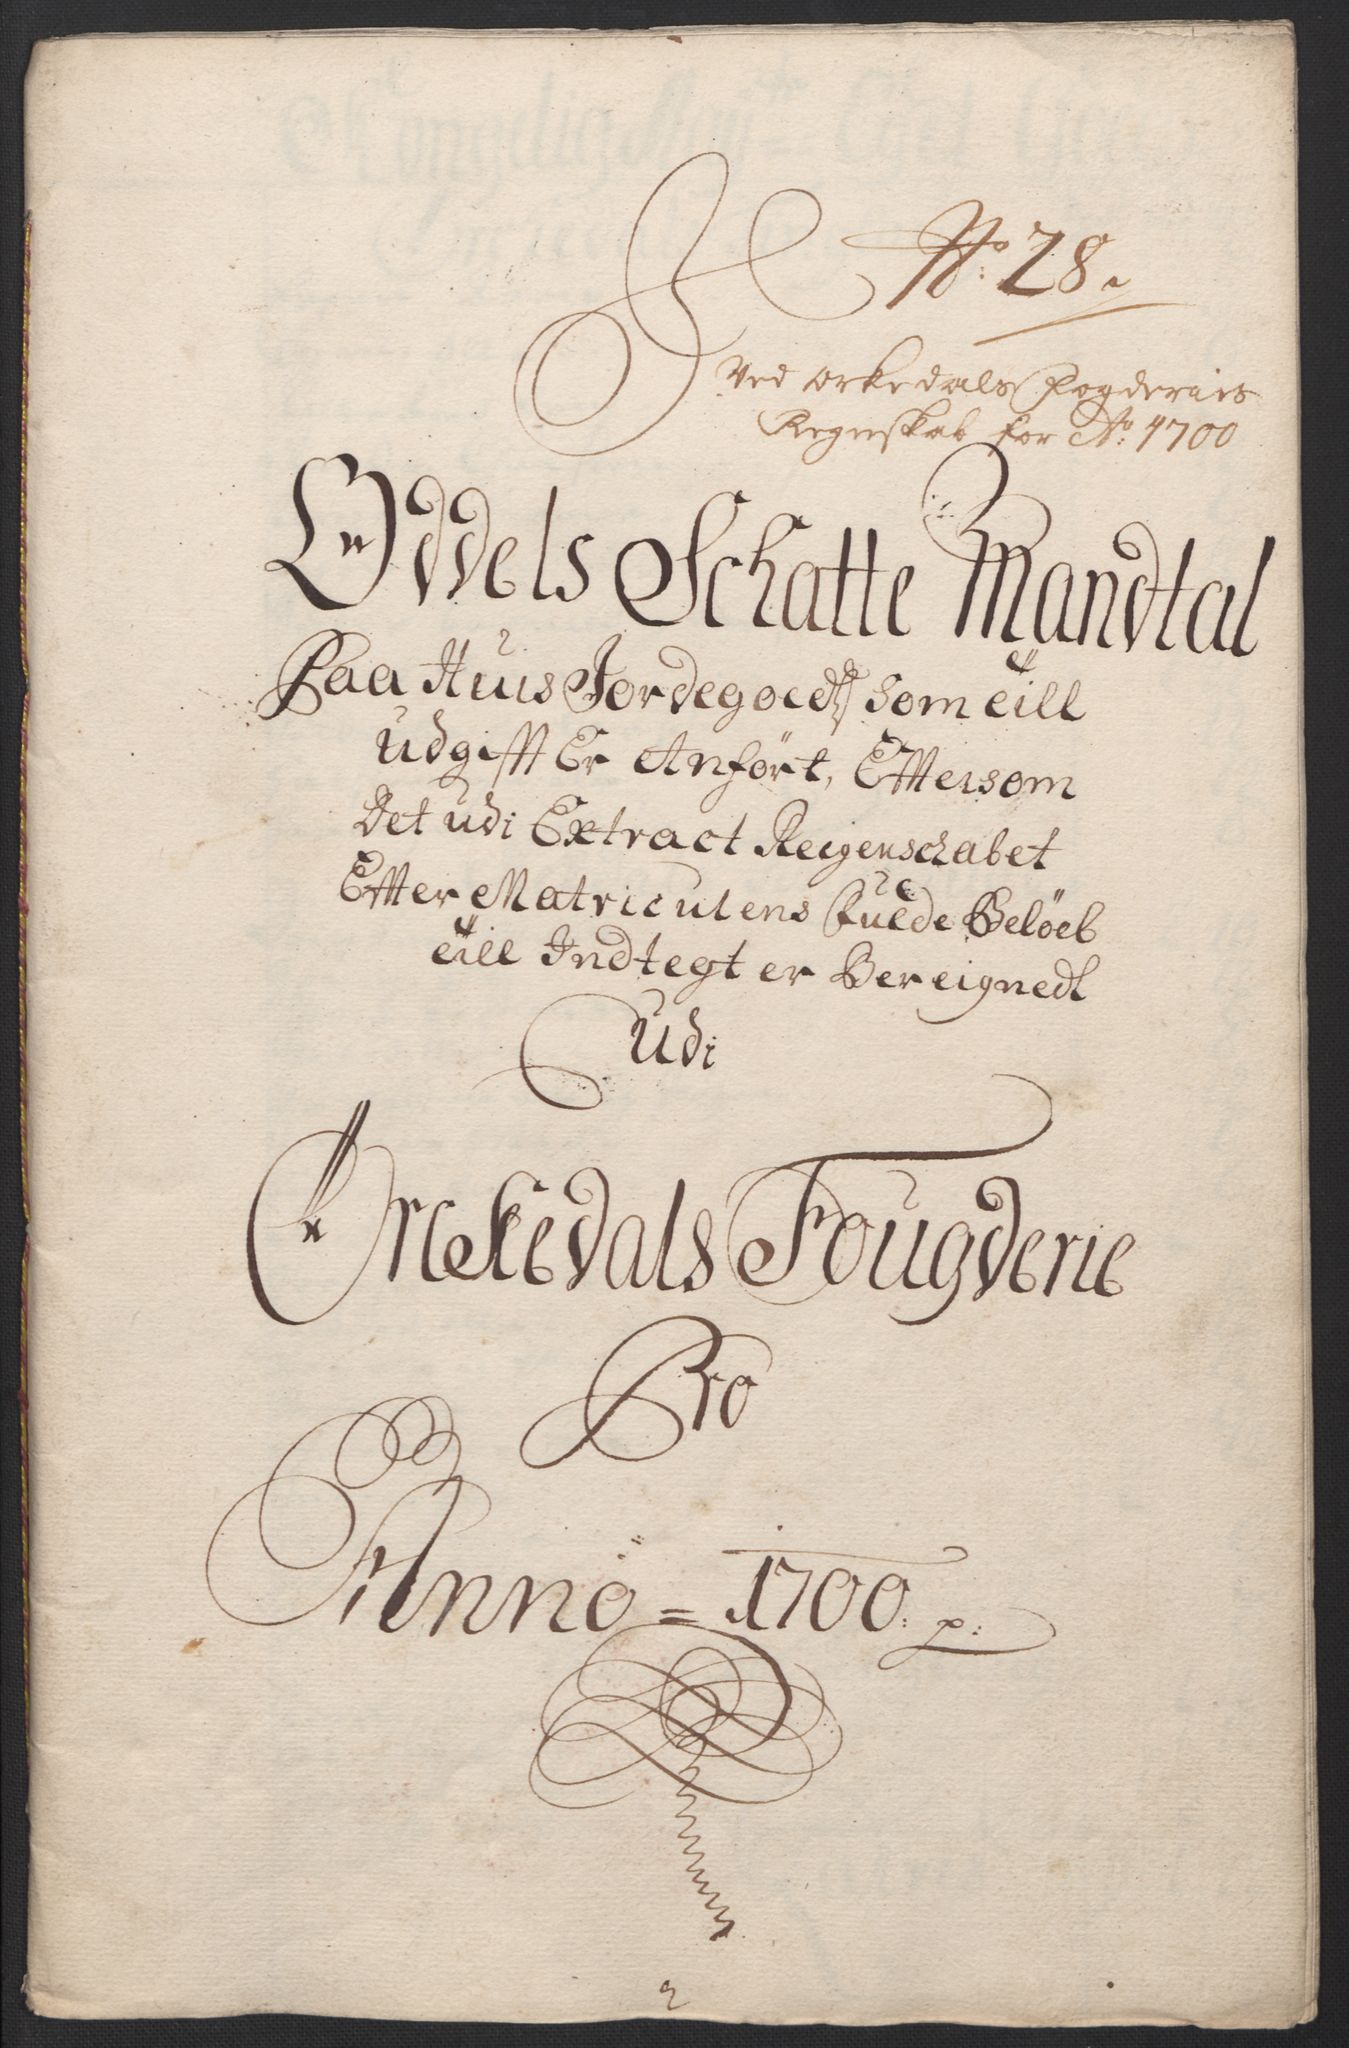 No: 28.
Ved Orkedals Fogderies
Regnskab for Ao: 1700
Oddels Schatte Mandtal
Paa Huis Jordegoeds som till
udgifft Er Anført, Eftersom
Det udi Extract Reigenschabet
Effter Matriculens fulde Beløeb
till Indtegt er Bereignedt
Udi
Orckedals Fougderie
Pro
Anno = 1700. p:
2